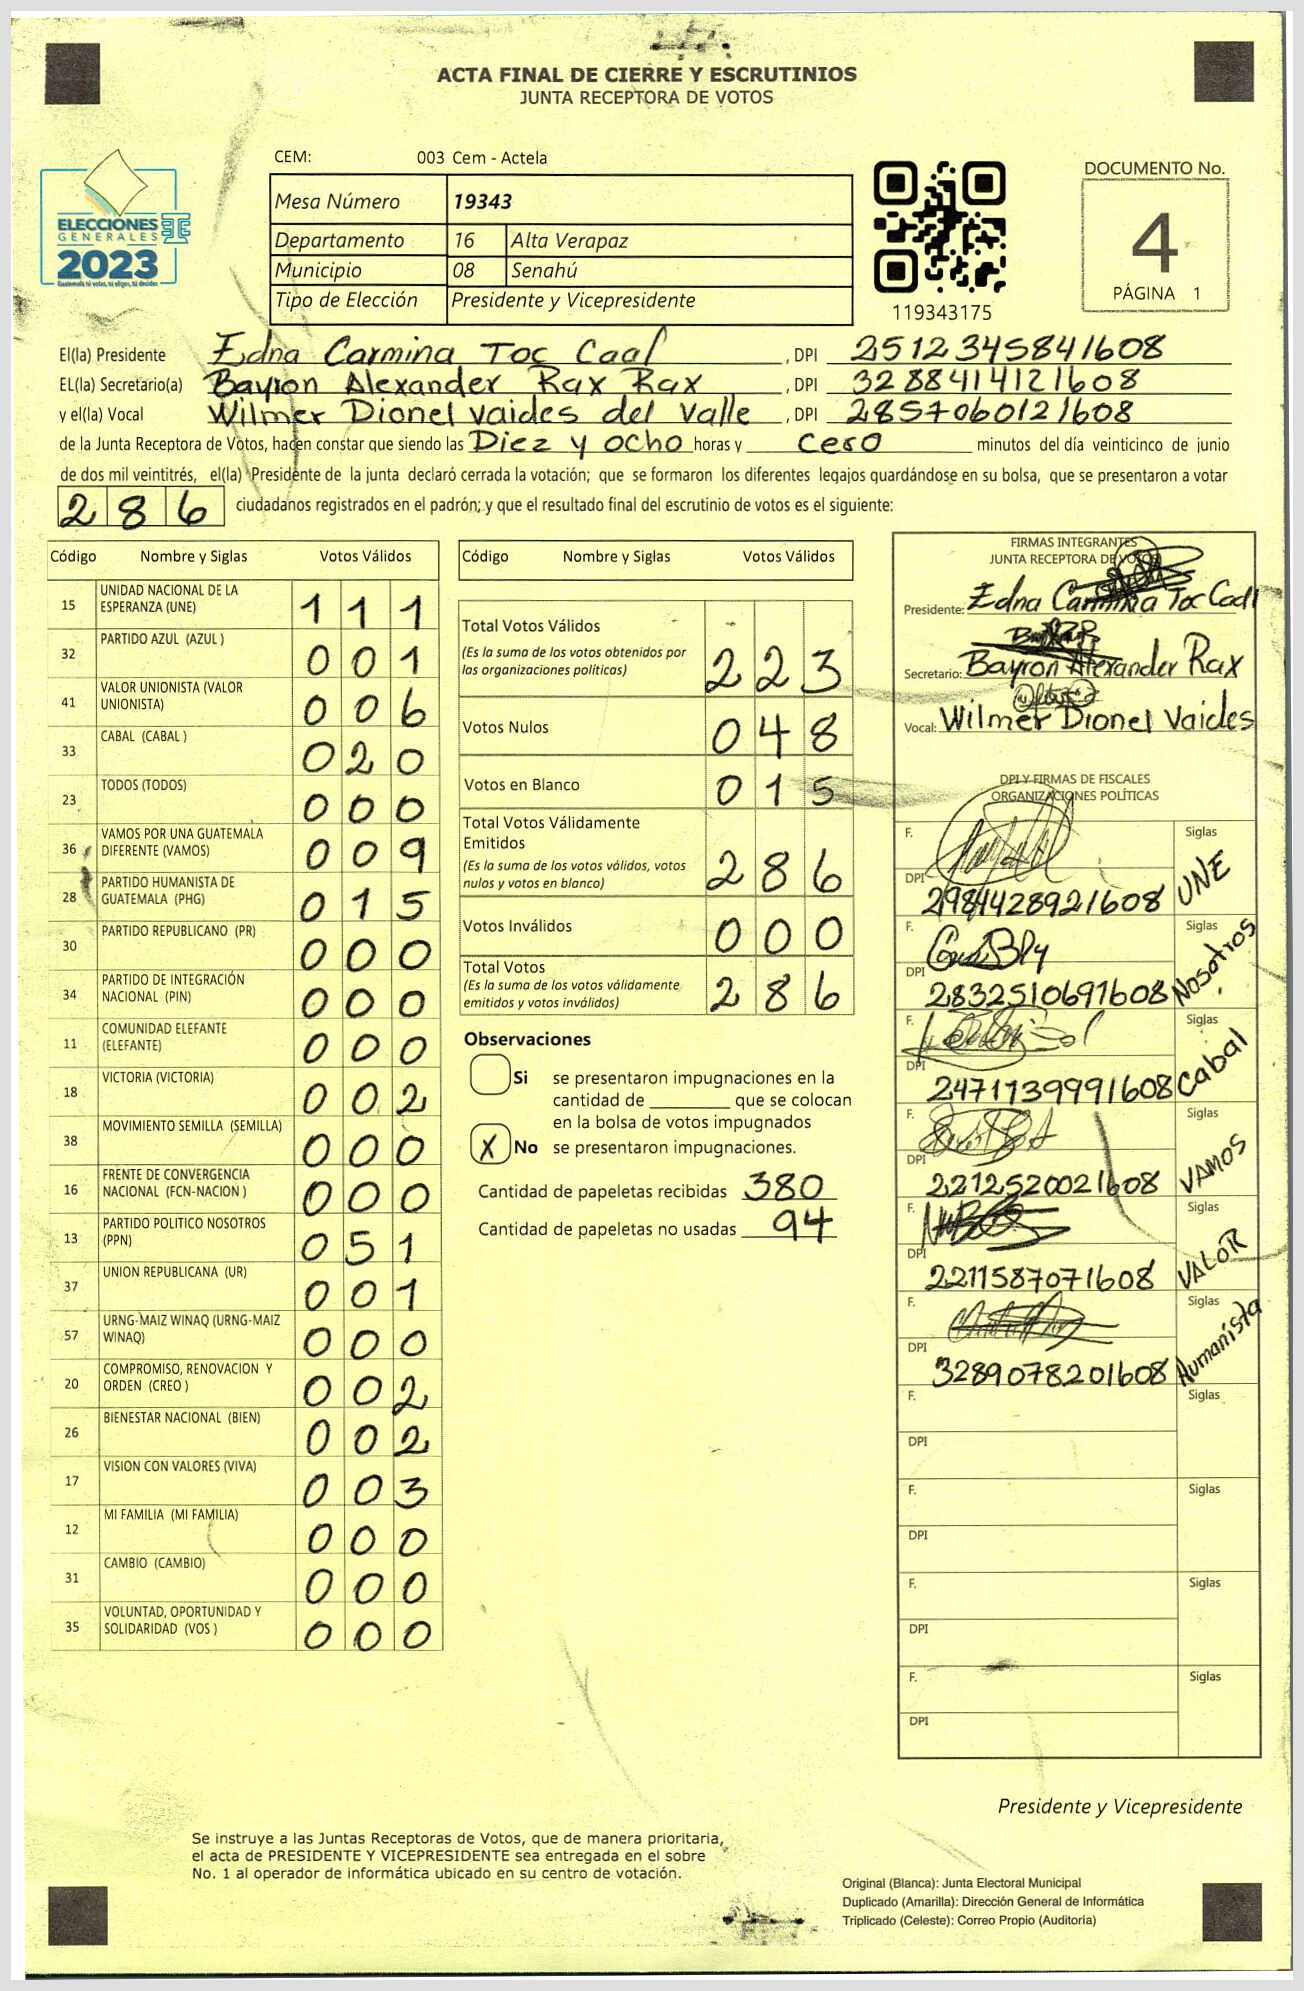 ACTA FINAL DE CIERRE Y ESCRUTINIOS
JUNTA RECEPTORA DE VOTOS
CEM: 003 Cem - Actela
ELECCIONES
GENERALES
2023
Guatemala tú votas, tú eliges, tú decides
Mesa Número 19343
Departamento 16 Alta Verapaz
Municipio 08 Senahú
Tipo de Elección Presidente y Vicepresidente
119343175
DOCUMENTO No.
4
PÁGINA 1
El(la) Presidente Edna Carmina Toc Caal , DPI 2512345841608
EL(la) Secretario(a) Bayron Alexander Rax Rax , DPI 3288414121608
y el(la) Vocal Wilmer Dionel Vaides del Valle , DPI 2857060121608
de la Junta Receptora de Votos, hacen constar que siendo las Diez y ocho horas y cero minutos del día veinticinco de junio
de dos mil veintitrés, el(la) Presidente de la junta declaró cerrada la votación; que se formaron los diferentes legajos guardándose en su bolsa, que se presentaron a votar
286 ciudadanos registrados en el padrón; y que el resultado final del escrutinio de votos es el siguiente:
Código Nombre y Siglas Votos Válidos
15 UNIDAD NACIONAL DE LA ESPERANZA (UNE) 111
32 PARTIDO AZUL (AZUL ) 001
41 VALOR UNIONISTA (VALOR UNIONISTA) 006
33 CABAL (CABAL ) 020
23 TODOS (TODOS) 000
36 VAMOS POR UNA GUATEMALA DIFERENTE (VAMOS) 009
28 PARTIDO HUMANISTA DE GUATEMALA (PHG) 015
30 PARTIDO REPUBLICANO (PR) 000
34 PARTIDO DE INTEGRACIÓN NACIONAL (PIN) 000
11 COMUNIDAD ELEFANTE (ELEFANTE) 000
18 VICTORIA (VICTORIA) 002
38 MOVIMIENTO SEMILLA (SEMILLA) 000
16 FRENTE DE CONVERGENCIA NACIONAL (FCN-NACION ) 000
13 PARTIDO POLITICO NOSOTROS (PPN) 051
37 UNION REPUBLICANA (UR) 001
57 URNG-MAIZ WINAQ (URNG-MAIZ WINAQ) 000
20 COMPROMISO, RENOVACION Y ORDEN (CREO ) 002
26 BIENESTAR NACIONAL (BIEN) 002
17 VISION CON VALORES (VIVA) 003
12 MI FAMILIA (MI FAMILIA) 000
31 CAMBIO (CAMBIO) 000
35 VOLUNTAD, OPORTUNIDAD Y SOLIDARIDAD (VOS ) 000
Código Nombre y Siglas Votos Válidos
Total Votos Válidos
(Es la suma de los votos obtenidos por
las organizaciones políticas) 223
Votos Nulos 048
Votos en Blanco 015
Total Votos Válidamente
Emitidos
(Es la suma de los votos válidos, votos
nulos y votos en blanco) 286
Votos Inválidos 000
Total Votos
(Es la suma de los votos válidamente
emitidos y votos inválidos) 286
Observaciones
Si se presentaron impugnaciones en la
cantidad de ________ que se colocan
en la bolsa de votos impugnados
X No se presentaron impugnaciones.
Cantidad de papeletas recibidas 380
Cantidad de papeletas no usadas 94
FIRMAS INTEGRANTES
JUNTA RECEPTORA DE VOTOS
Presidente: Edna Carmina Toc Caal
Secretario: Bayron Alexander Rax
Vocal: Wilmer Dionel Vaides
DPI Y FIRMAS DE FISCALES
ORGANIZACIONES POLÍTICAS
F. Siglas
DPI 2984428921608 UNE
F. Siglas
DPI 2832510691608 Nosotros
F. Siglas
DPI 2471739991608 Cabal
F. Siglas
DPI 2212520021608 VAMOS
F. Siglas
DPI 2211587071608 VALOR
F. Siglas
DPI 3289078201608 Humanista
F. Siglas
DPI
F. Siglas
DPI
F. Siglas
DPI
F. Siglas
DPI
Presidente y Vicepresidente
Se instruye a las Juntas Receptoras de Votos, que de manera prioritaria,
el acta de PRESIDENTE Y VICEPRESIDENTE sea entregada en el sobre
No. 1 al operador de informática ubicado en su centro de votación.
Original (Blanca): Junta Electoral Municipal
Duplicado (Amarilla): Dirección General de Informática
Triplicado (Celeste): Correo Propio (Auditoría)